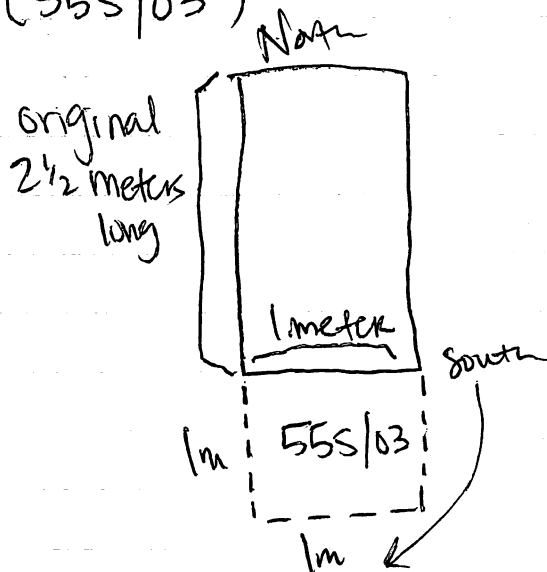 (55S/03)
North
original
2 1/2 meters
long
1 meter
South
1m
55S/03
1m